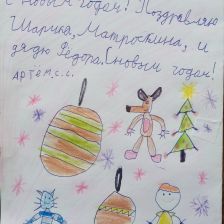 С новым годом! Поздравляю
Шарика, Матроскина, и
дядю Фёдора. С новым годом!
АРТЁМ, С.С.